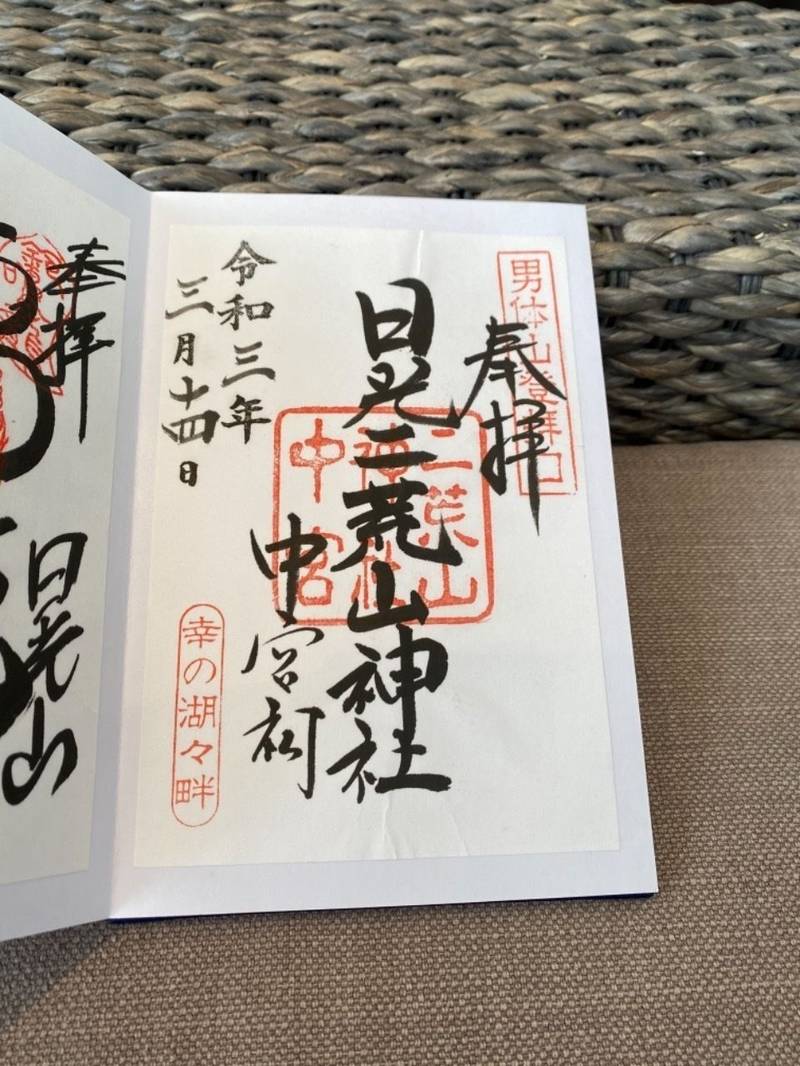 男体山登拝口
奉拝
日光二荒山神社
二荒山
神社
中宮
中宮祠
令和三年
三月十四日
幸の湖々畔
奉拝
日光山